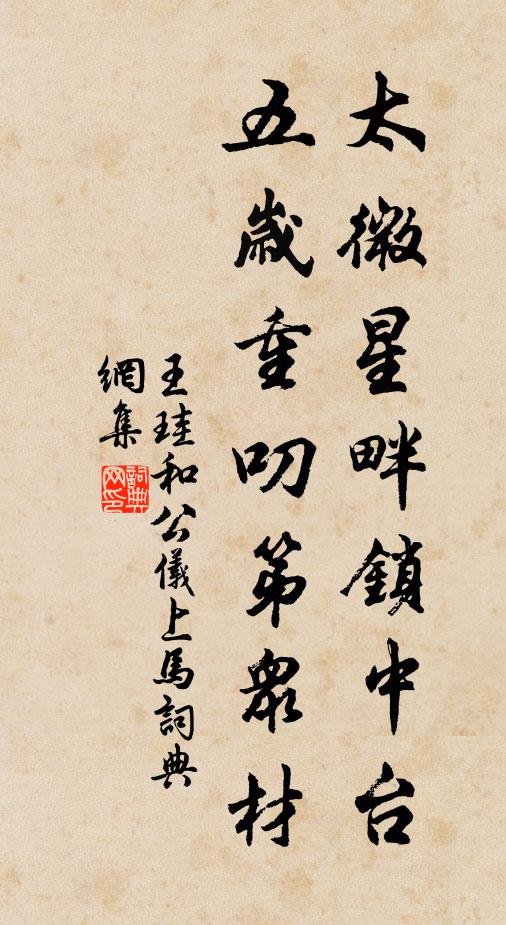 太微星畔鎖中台
五歲重叨第衆材
王珪和公儀上馬詞典
網集
詞典網印